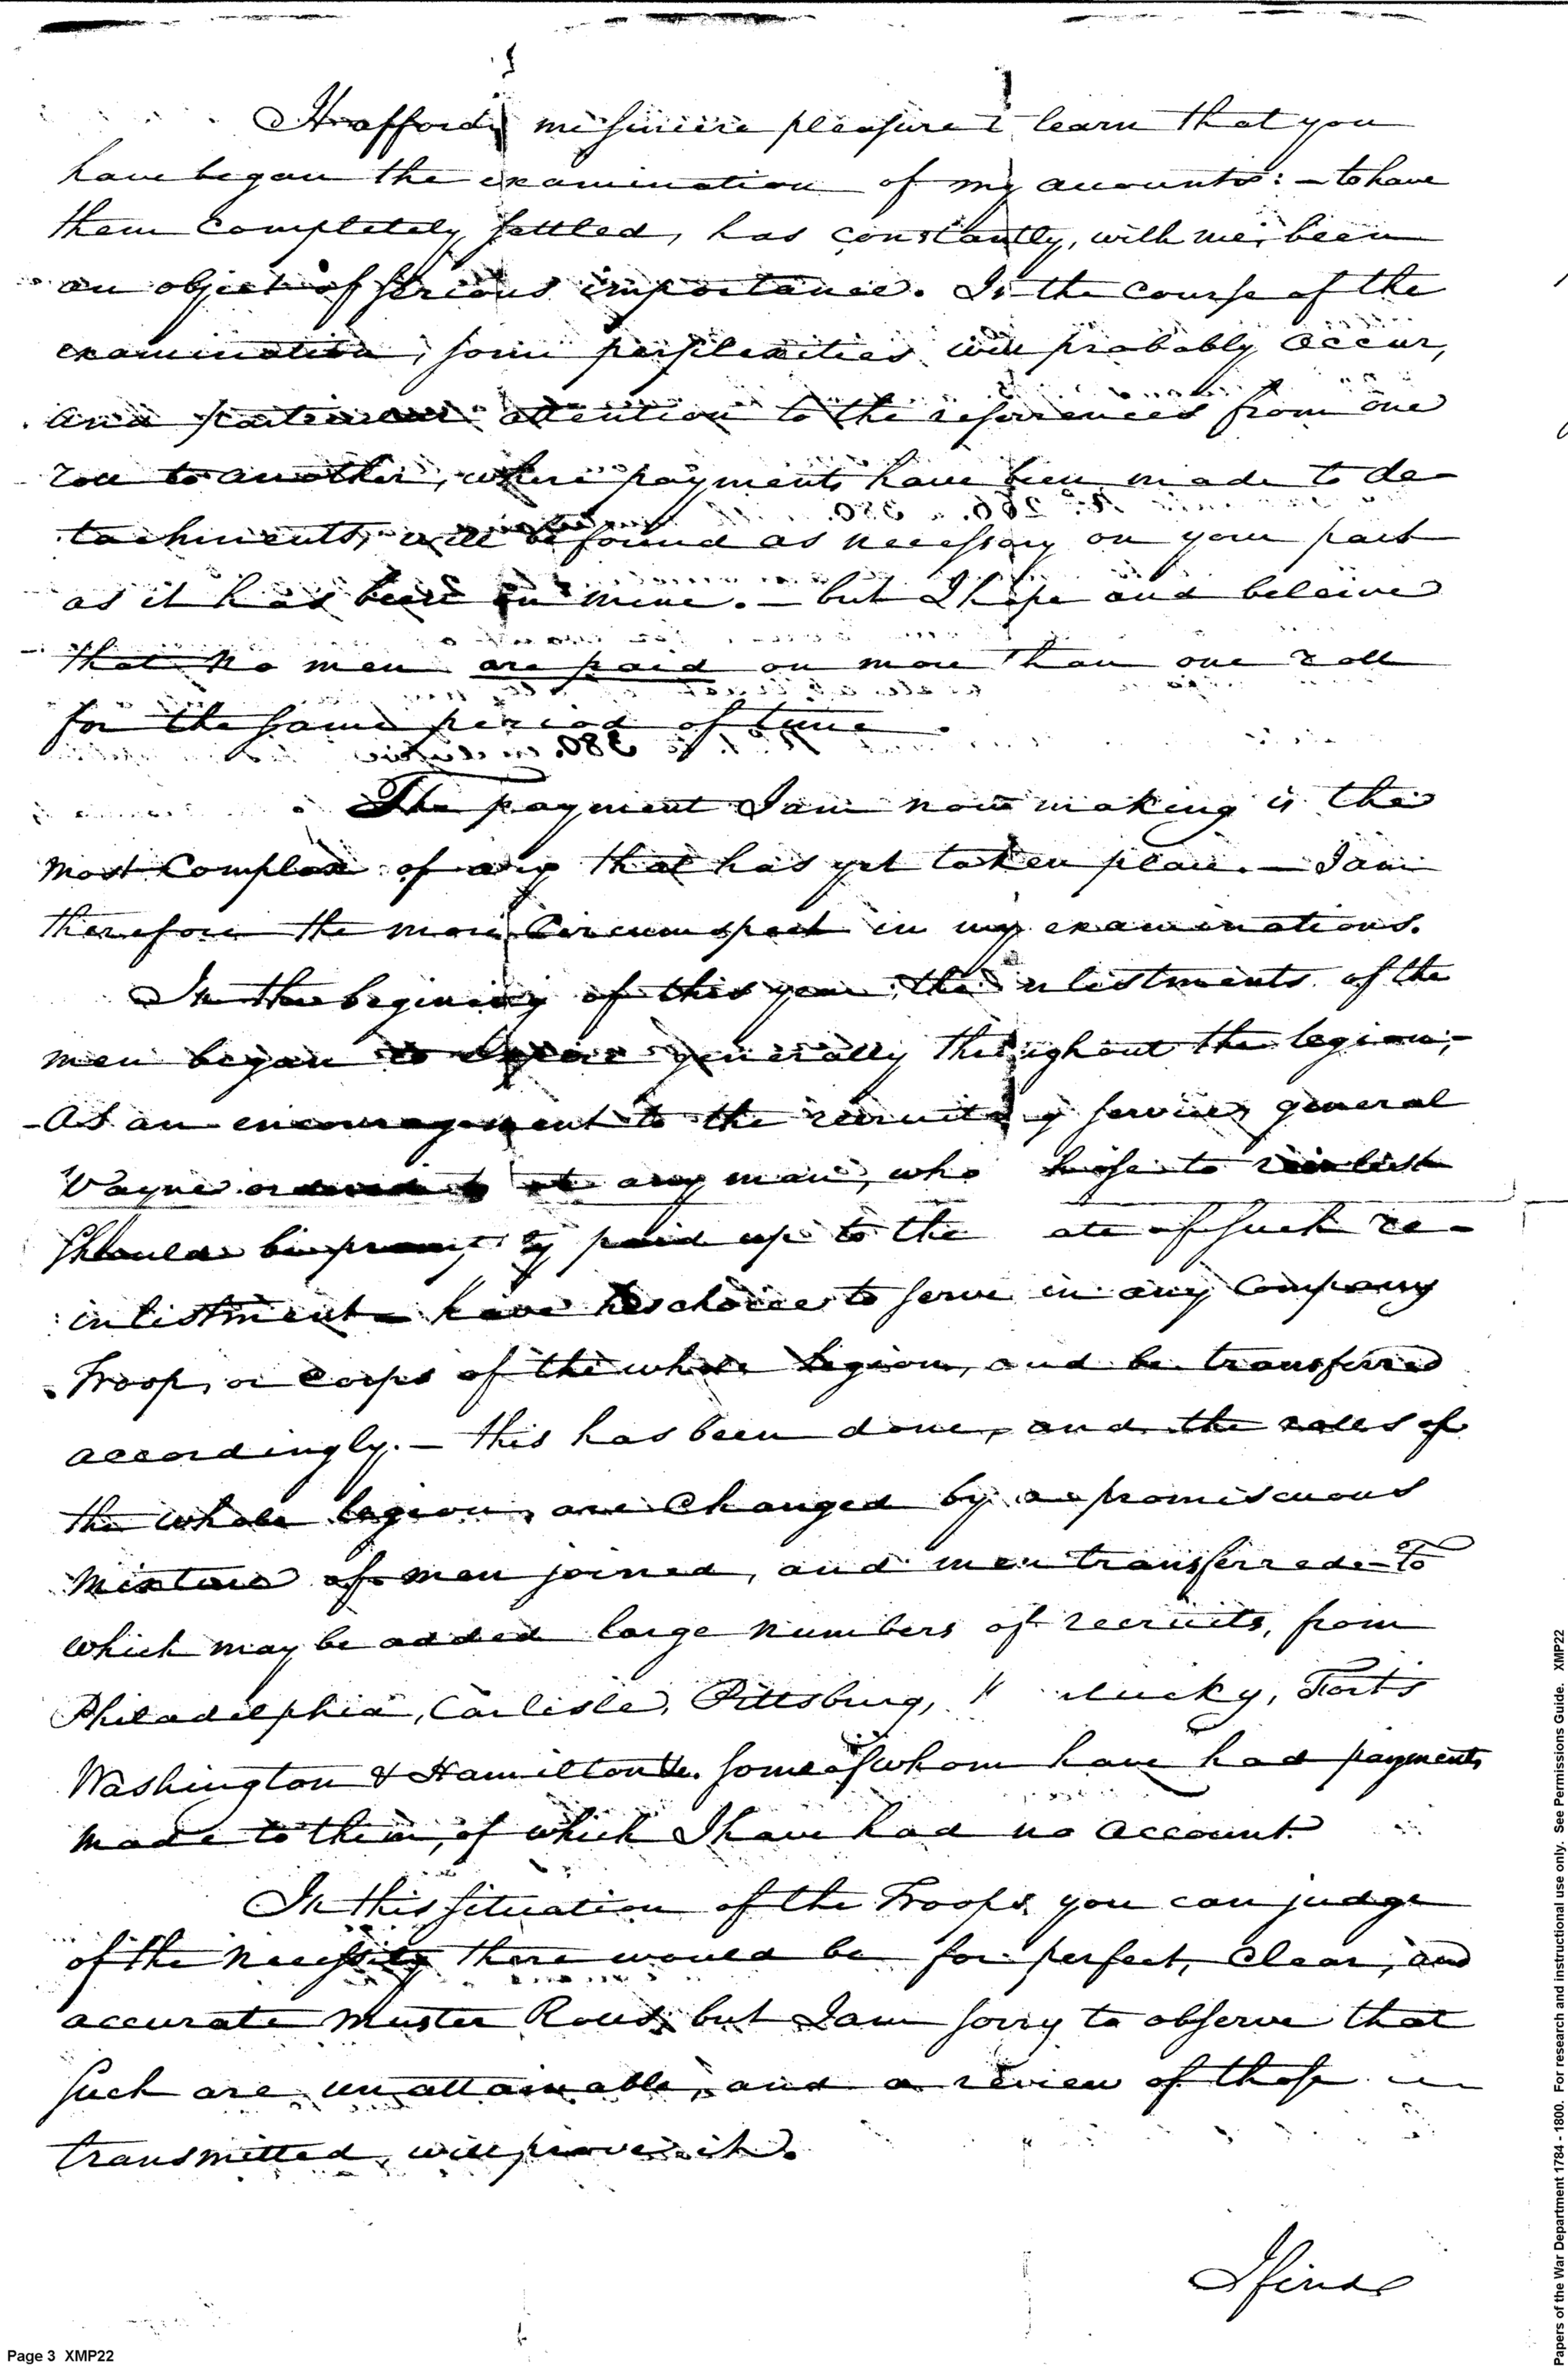 It affords me sincere pleasure to learn that you
have began the examination of my accounts: – to have
them completely settled, has constantly, with me, been
an object of serious importance. In the course of the
examination, some perplexities will probably occur,
and particular attention to the references from one
roll to another, where payments have been made to de-
tachments, will be found as necessary on your part
as it has been on mine. – but I hope and beleive
that no men are paid on more than one roll
for the same period of time.
The payment I am now making is the
most Complex of any that has yet taken place. – I am
therefore the more Circumspect in my examinations.
In the begining of this year the inlistments of the
men began to expire generally throughout the legion; –
As an encouragement to the recruiting service, general
Wayne ordered that any man, who chose to reinlist
should be promptly paid up to the date of such re-
inlistment – have his choice to serve in any Company
Troop, or Corps of the whole legion, and be transferred
accordingly. – this has been done, and the rolls of
the whole legion, are Changed by a promiscuous
mixture of men joined, and men transferred – To
which may be added large numbers of recruits, from
Philadelphia, Carlisle, Pittsburg, Kentucky, Forts
Washington & Hamilton &c. some of whom have had payments
made to them, of which I have had no account.
In this situation of the Troops you can judge
of the necessity there would be for perfect, clear, and
accurate muster Rolls, but I am sorry to observe that
such are unattainable, and a review of those
transmitted, will prove it.
I find
Page 3 XMP22
Papers of the War Department 1784 - 1800. For research and instructional use only. See Permissions Guide. XMP22